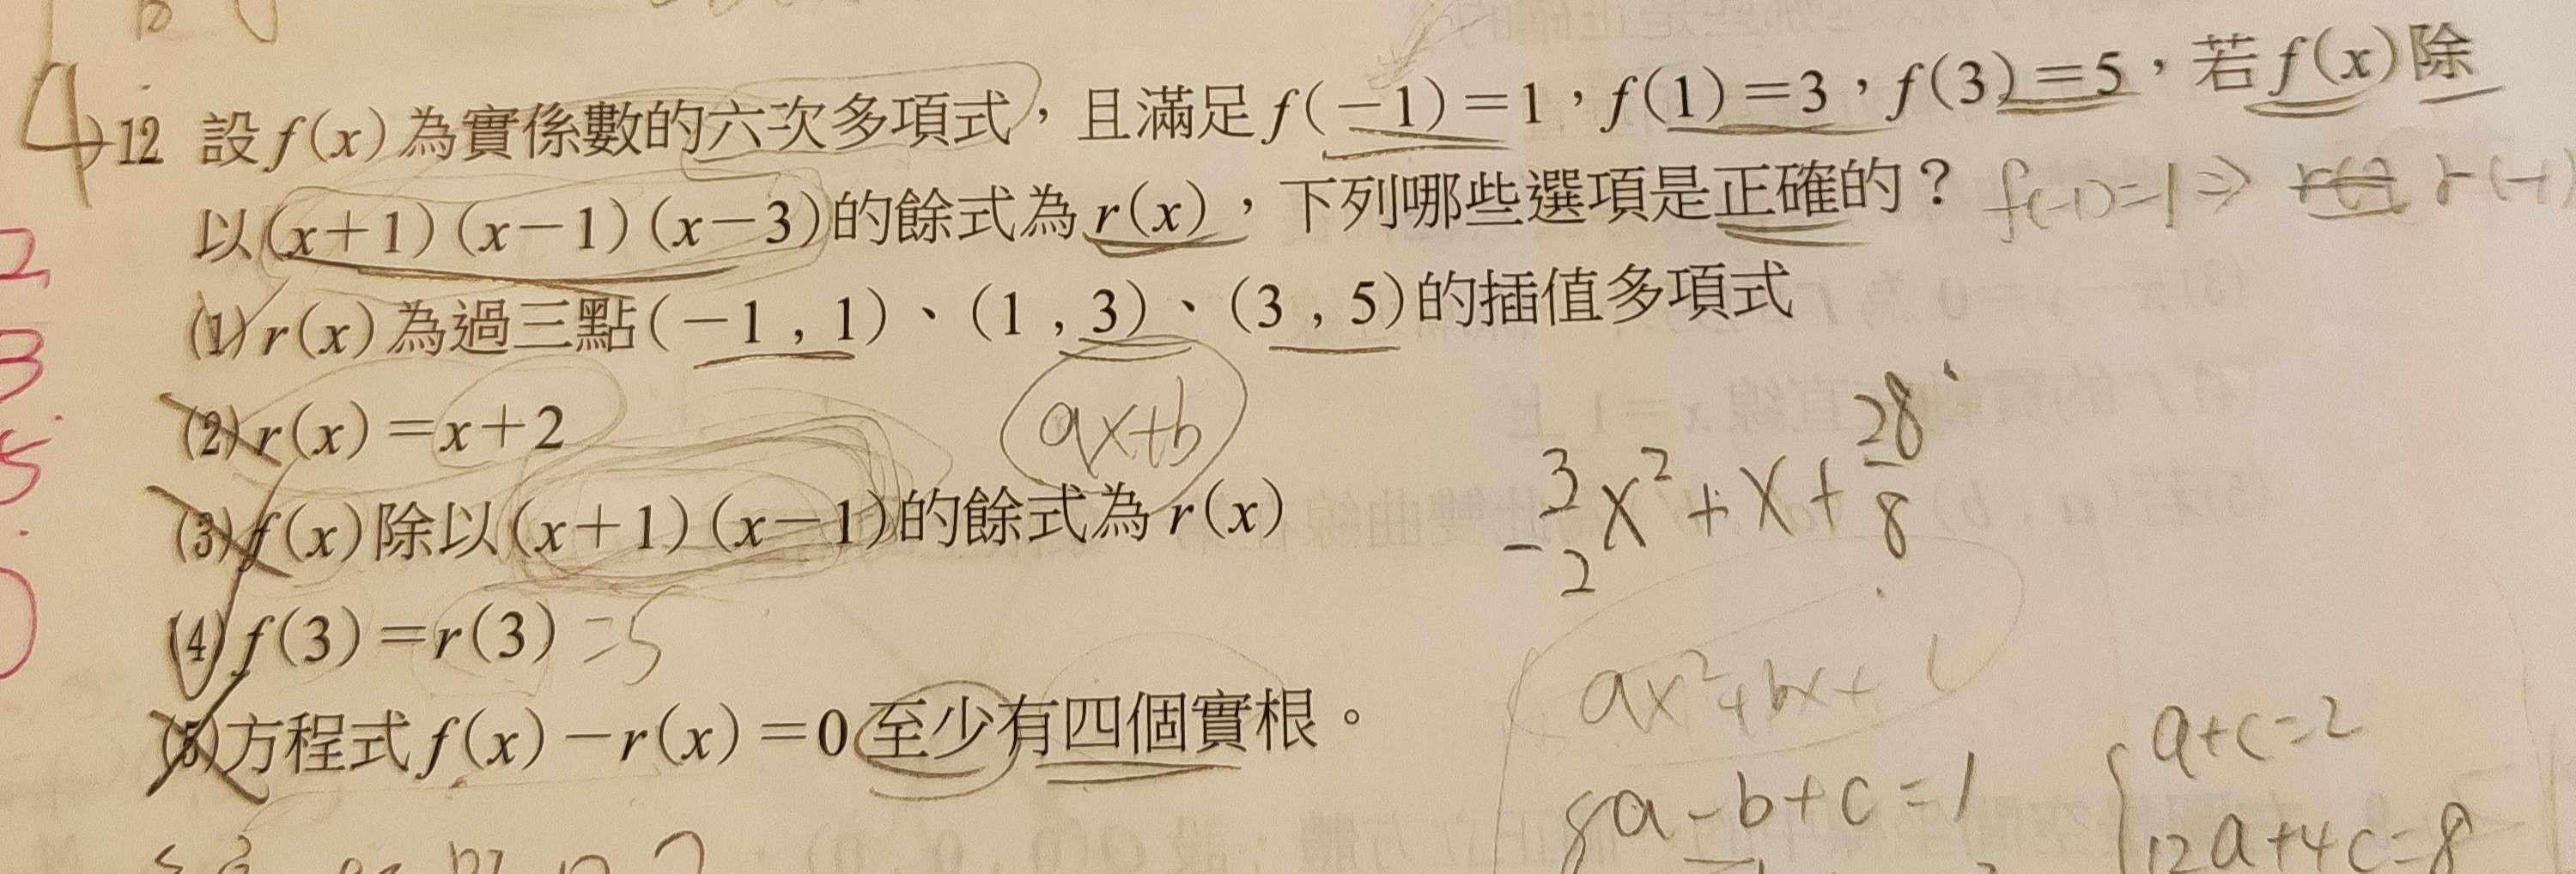 4
12 設f(x)為實係數的六次多項式，且滿足f(−1)=1，f(1)=3，f(3)=5，若f(x)除
以(x+1)(x−1)(x−3)的餘式為r(x)，下列哪些選項是正確的？ f(-1)=1⇒ r(-1)
(1) r(x)為過三點(−1，1)、(1，3)、(3，5)的插值多項式
(2) r(x)=x+2
ax+b
(3) f(x)除以(x+1)(x−1)的餘式為r(x)
-3/2 x²+x+28/8
(4) f(3)=r(3) =5
ax²+bx+
(5)方程式f(x)−r(x)=0至少有四個實根。
a-b+c=1
a+c=2
12a+4c=8
2
3
5